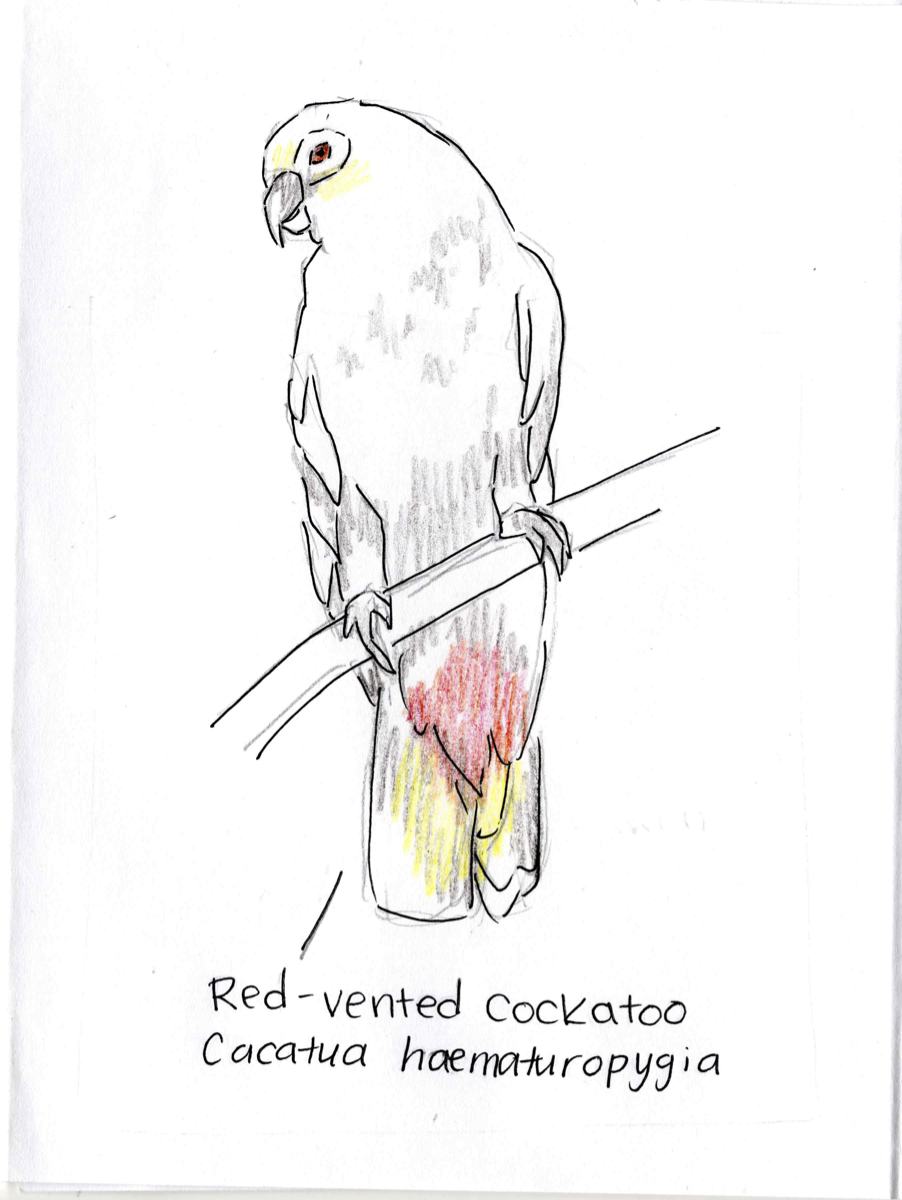 Red-vented Cockatoo
Cacatua haematuropygia